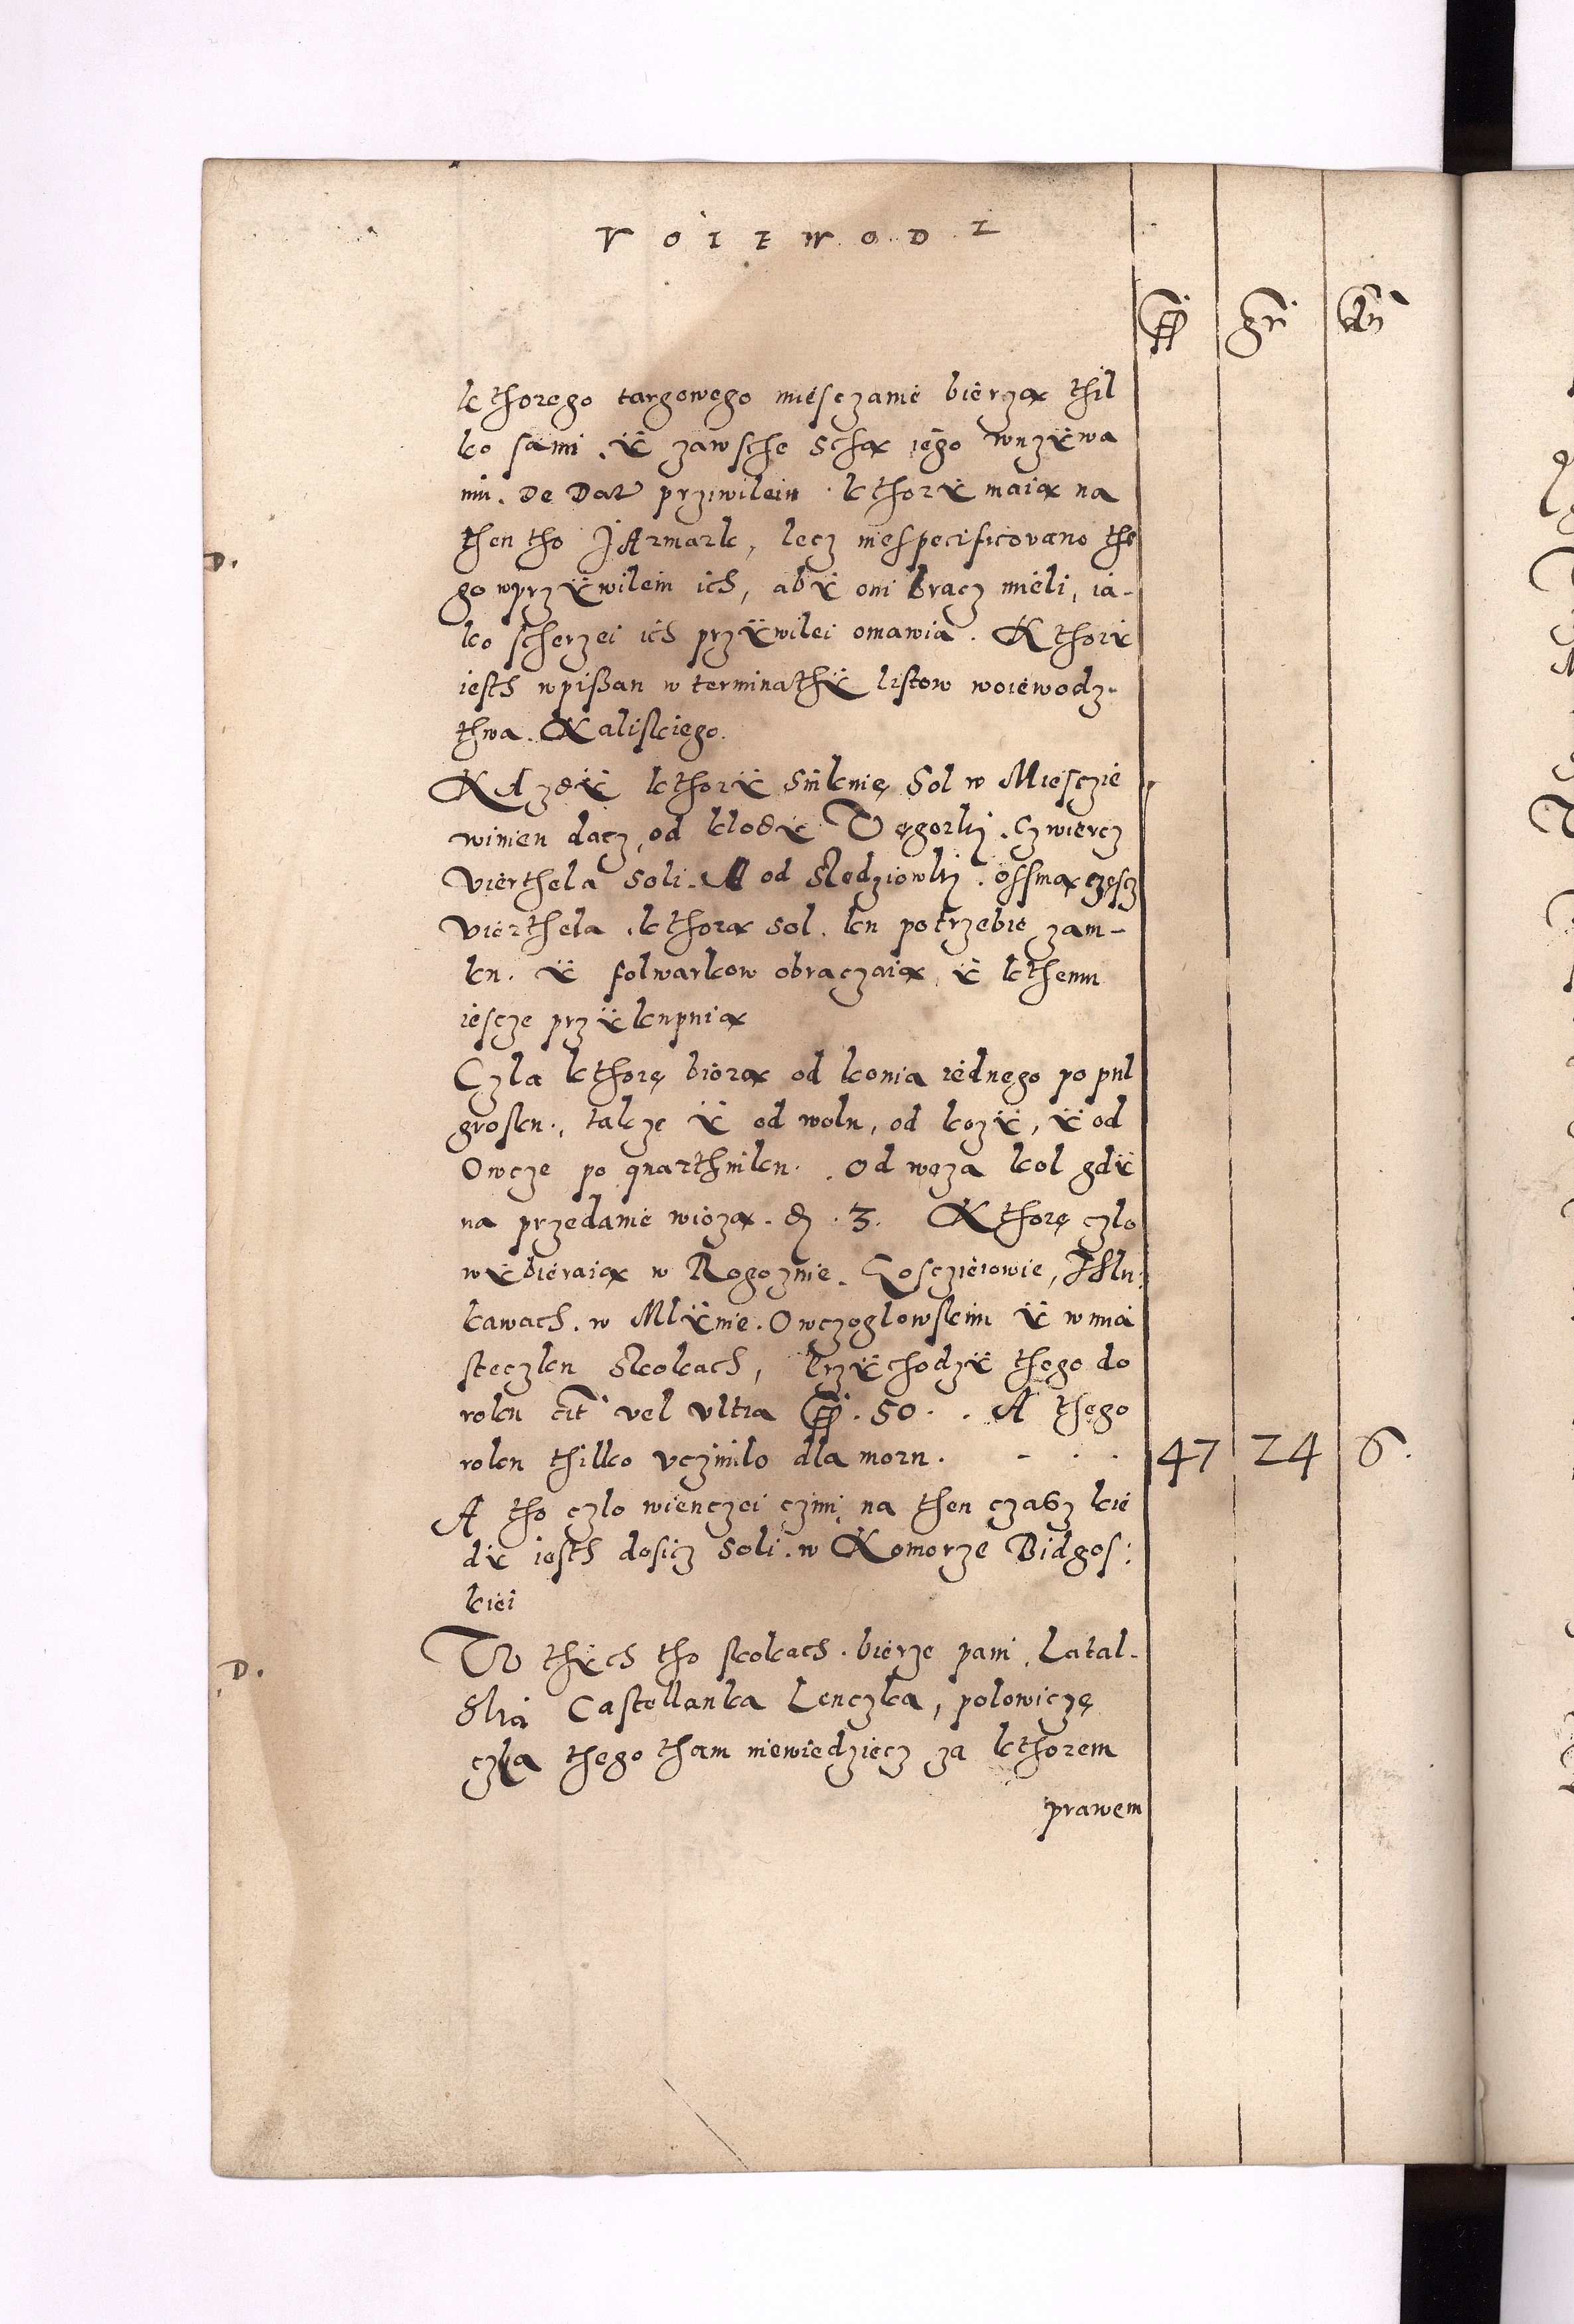 VOIEWODZ
fl gr dn
kthorego targowego miesczanie bierzą thil
ko sami, ÿ zawsche schą iego wuzÿwa
mi. De Dat przιwileiu kthorÿ maią na
then tho JArmark, lecz niespecificovano the
D.
go wprzÿwileiu ich, abÿ oni bracz mieli, ia-
ko scherzei ich przÿwilei omawia. Kthorÿ
iesth wpißan w terminathÿ listow woiewodz-
thwa Kaliskiego.
KAzdÿ kthorÿ Suknię Sol w Miesczie
winien dacz, od klodÿ Węgorki, czwiercz
vierthela soli. A od sledziowki. ossmą częscz
vierthela, kthorą sol ku potrzebie zam-
ku. ÿ folwarkow obraczaią, ÿ kthemu
iescze przÿkupuią
Czla kthore biorą od konia iednego po pul
grosku, takze ÿ od wolu, od kozÿ, ÿ od
Owcze po quarthniku. Od woza kol gdÿ
na przedanie wiozą. d. 3. Kthore czlo
wÿbieraią w Rogoznie. Gosczieiowie, Stu:
kawach. w Mlÿnie. Owczoglowskim ÿ wmia
steczku Skokach, Przÿchodzÿ thego do
roku cit vel vltra fl. 50. A thego
roku thilko vczinilo dla moru. - . . 47 24 6.
A tho czlo wienczei czini na then czasz kie
dÿ iesth dosicz Soli. w Komorze Bidgos:
kiei
D.
W thÿch tho skokach. bierze pani Latal-
skia Castellanka Lenczka, polowicze
czla thego tham niewiedziecz za kthorem
prawem